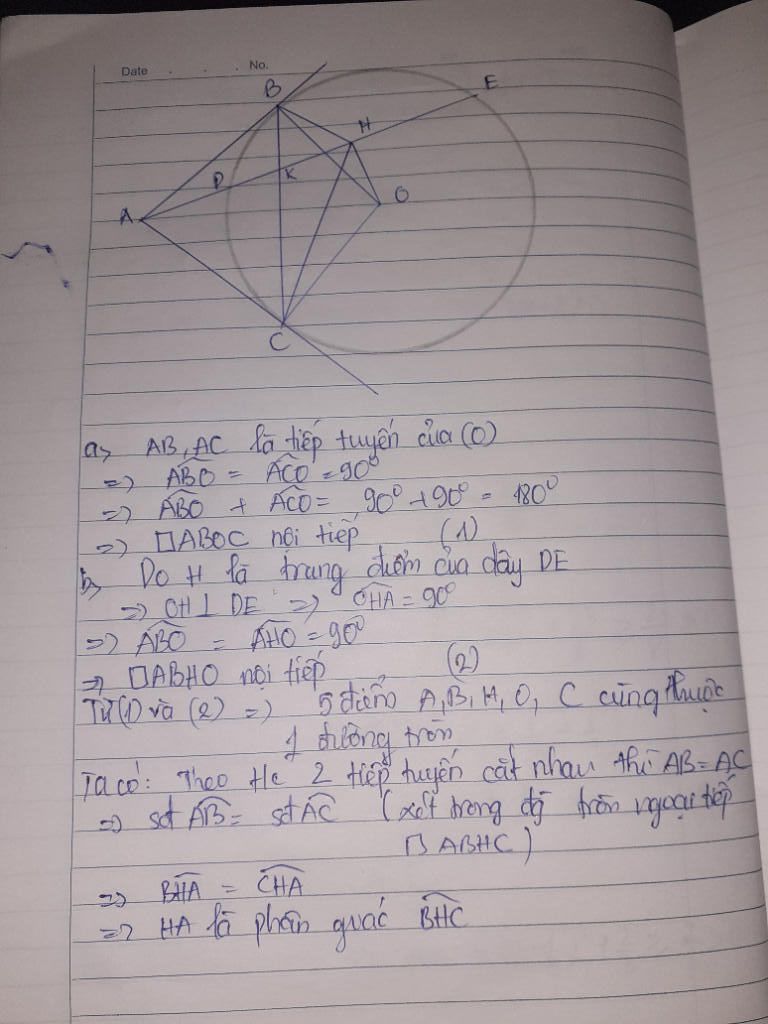 Date . . . No.
B
E
H
D
K
A
O
C
a, AB, AC là tiếp tuyến của (O)
=> ABO = ACO = 90⁰
=> ABO + ACO = 90⁰ + 90⁰ = 180⁰
=> □ABOC nội tiếp (1)
b, Do H là trung điểm của dây DE
=> OH ⊥ DE => OHA = 90⁰
=> ABO = AHO = 90⁰
=> □ABHO nội tiếp (2)
Từ (1) và (2) => 5 điểm A, B, H, O, C cùng thuộc
1 đường tròn
Ta có: Theo t/c 2 tiếp tuyến cắt nhau thì AB = AC
=> sđ AB = sđ AC (xét trong đg tròn ngoại tiếp
□ ABHC)
=> BHA = CHA
=> HA là phân giác BHC